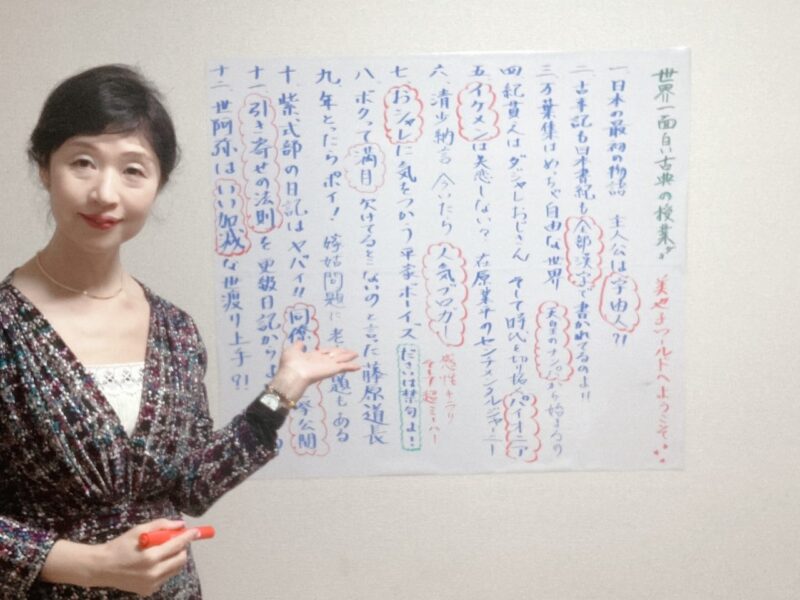 世界一面白い古典の授業
美也子ワールドへようこそ
一、日本の最初の物語 主人公は宇宙人?!
二、古事記も日本書紀も全部漢字で書かれてるのよ!!
三、万葉集はめっちゃ自由な世界 天皇のナンパから始まるの
四、紀貫之はダジャレおじさん そして時代を切り拓くパイオニア
五、イケメンは失恋しない? 在原業平のセンチメンタルジャーニー
六、清少納言 今いたら 人気ブロガー
感性キラリ
超ミーハー
七、おシャレに気をつかう平家ボーイズ ださいは禁句よ!
八、ボクって満月 欠けてるとこないのと言った藤原道長
九、年とったらポイ! 嫁姑問題に老 題もある
十、紫式部の日記はヤバイ!! 同僚 公開
十一、引き寄せの法則を更級日記からよ
十二、世阿弥はいい加減な世渡り上手?!